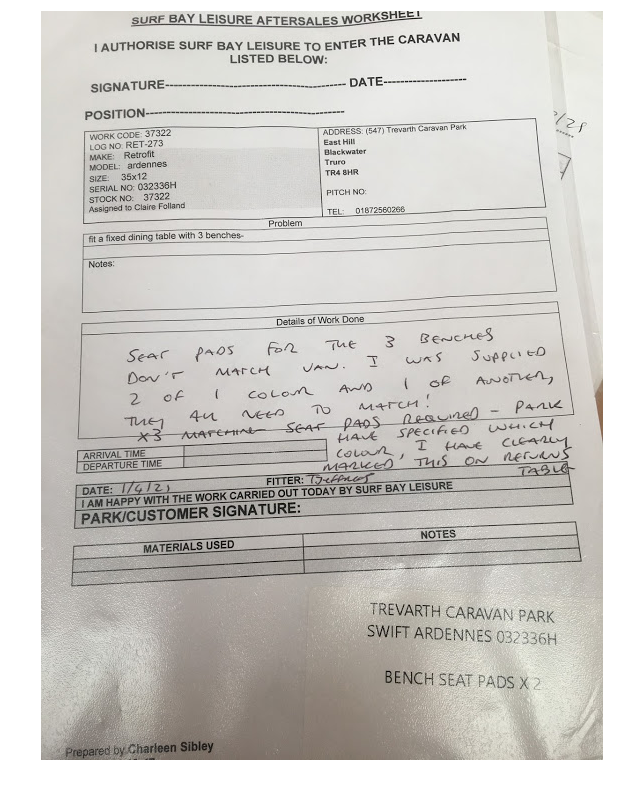 SURF BAY LEISURE AFTERSALES WORKSHEET
I AUTHORISE SURF BAY LEISURE TO ENTER THE CARAVAN
LISTED BELOW:
SIGNATURE---------------------------------------------- DATE---------------------
POSITION---------------------------------------------------
WORK CODE: 37322
LOG NO: RET-273
MAKE: Retrofit
MODEL: ardennes
SIZE: 35x12
SERIAL NO: 032336H
STOCK NO: 37322
Assigned to Claire Folland
ADDRESS: (547) Trevarth Caravan Park
East Hill
Blackwater
Truro
TR4 8HR
PITCH NO:
TEL: 01872560266
Problem
fit a fixed dining table with 3 benches-
Notes:
Details of Work Done
SEAT PADS FOR THE 3 BENCHES
DON'T MATCH VAN. I WAS SUPPLIED
2 OF 1 COLOUR AND 1 OF ANOTHER,
THEY ALL NEED TO MATCH!
X3 MATCHING SEAT PADS REQUIRED - PARK
HAVE SPECIFIED WHICH
COLOUR, I HAVE CLEARLY
MARKED THIS ON RETURNS
TABLE
ARRIVAL TIME
DEPARTURE TIME
DATE: 1/4/21 FITTER:
I AM HAPPY WITH THE WORK CARRIED OUT TODAY BY SURF BAY LEISURE
PARK/CUSTOMER SIGNATURE:
MATERIALS USED
NOTES
TREVARTH CARAVAN PARK
SWIFT ARDENNES 032336H
BENCH SEAT PADS X 2
Prepared by Charleen Sibley